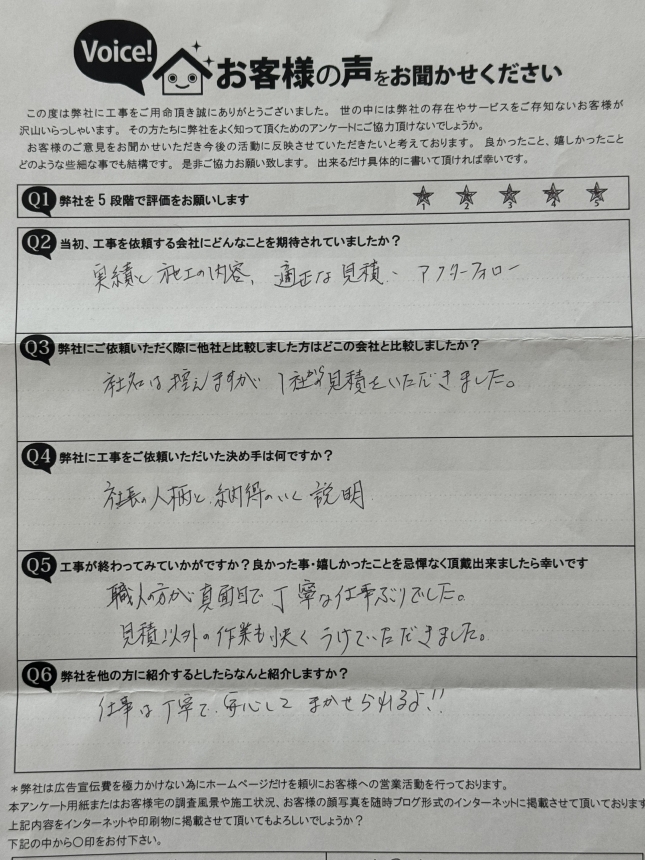 Voice!
お客様の声をお聞かせください
この度は弊社に工事をご用命頂き誠にありがとうございました。 世の中には弊社の存在やサービスをご存知ないお客様が
沢山いらっしゃいます。 その方たちに弊社をよく知って頂くためのアンケートにご協力頂けないでしょうか。
お客様のご意見をお聞かせいただき今後の活動に反映させていただきたいと考えております。 良かったこと、嬉しかったこと
どのような些細な事でも結構です。 是非ご協力お願い致します。 出来るだけ具体的に書いて頂ければ幸いです。
Q1 弊社を5段階で評価をお願いします 1 2 3 4 5
Q2 当初、工事を依頼する会社にどんなことを期待されていましたか？
実績と施工の内容、適正な見積、アフターフォロー
Q3 弊社にご依頼いただく際に他社と比較しました方はどこの会社と比較しましたか？
社名は控えますが1社から見積をいただきました。
Q4 弊社に工事をご依頼いただいた決め手は何ですか？
社長の人柄と納得のいく説明
Q5 工事が終わってみていかがですか？良かった事・嬉しかったことを忌憚なく頂戴出来ましたら幸いです
職人の方が真面目で丁寧な仕事ぶりでした。
見積以外の作業も快くうけていただきました。
Q6 弊社を他の方に紹介するとしたらなんと紹介しますか？
仕事は丁寧で、安心してまかせられるよ!!
＊弊社は広告宣伝費を極力かけない為にホームページだけを頼りにお客様への営業活動を行っております。
本アンケート用紙またはお客様宅の調査風景や施工状況、お客様の顔写真を随時ブログ形式のインターネットに掲載させて頂いております
上記内容をインターネットや印刷物に掲載させて頂いてもよろしいでしょうか？
下記の中から〇印をお付下さい。